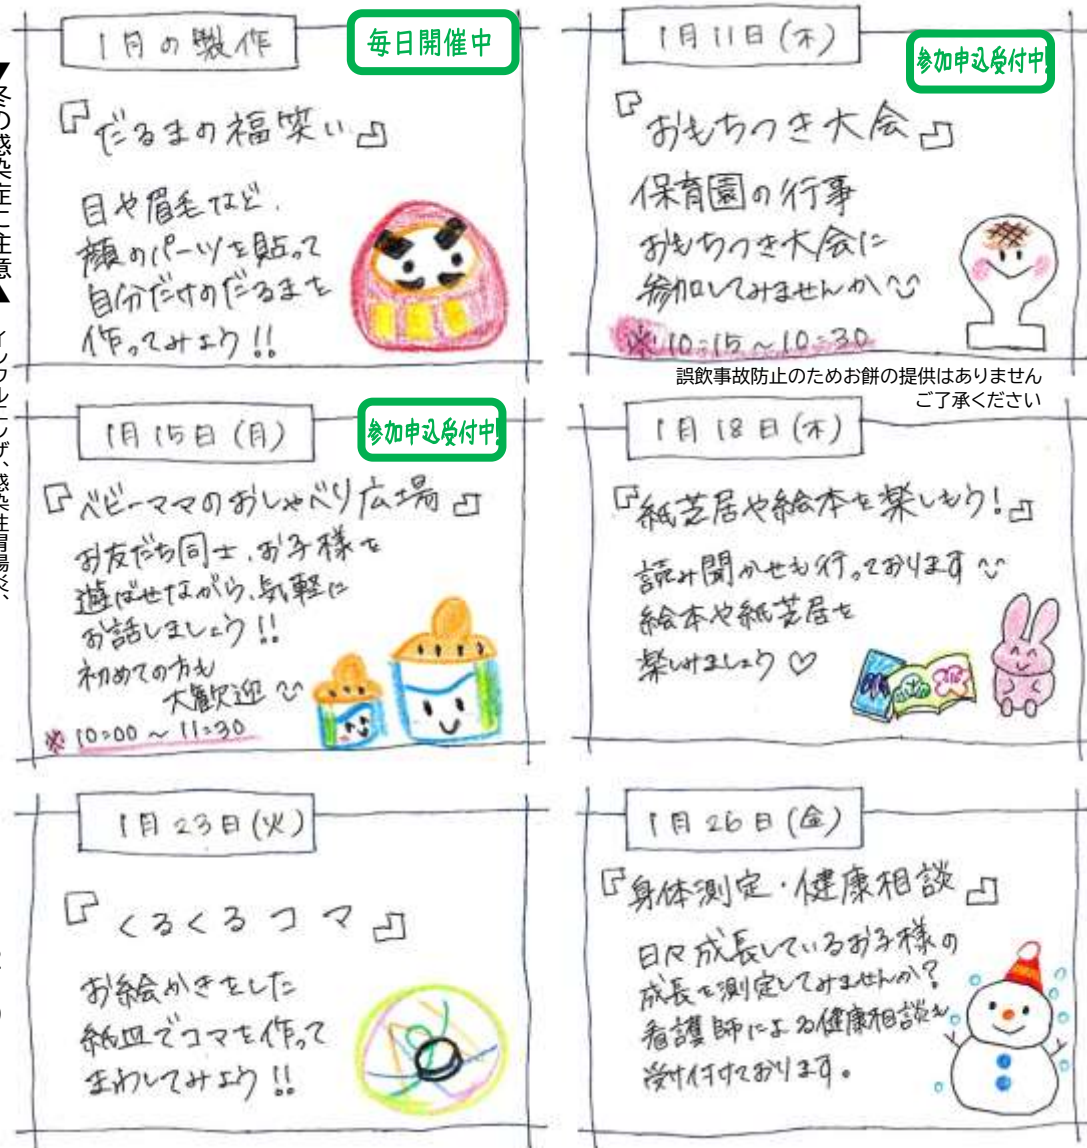 ▼冬の感染症に注意▲ インフルエンザ、感染性胃腸炎、
1月の製作
毎日開催中
『だるまの福笑い』
目や眉毛など、
顔のパーツを貼って
自分だけのだるまを
作ってみよう!!
1月11日(木)
参加申込受付中!
『おもちつき大会』
保育園の行事
おもちつき大会に
参加してみませんか
※10:15~10:30
誤飲事故防止のためお餅の提供はありません
ご了承ください
1月15日(月)
参加申込受付中!
『ベビーママのおしゃべり広場』
お友だち同士、お子様を
遊ばせながら、気軽に
お話しましょう!!
初めての方も
大歓迎
※10:00~11:30
1月18日(木)
『紙芝居や絵本を楽しもう!』
読み聞かせも行っております
絵本や紙芝居を
楽しみましょう♡
1月23日(火)
『くるくるコマ』
お絵かきをした
紙皿でコマを作って
まわしてみよう!!
1月26日(金)
『身体測定・健康相談』
日々成長しているお子様の
成長を測定してみませんか?
看護師による健康相談も
受け付けております。